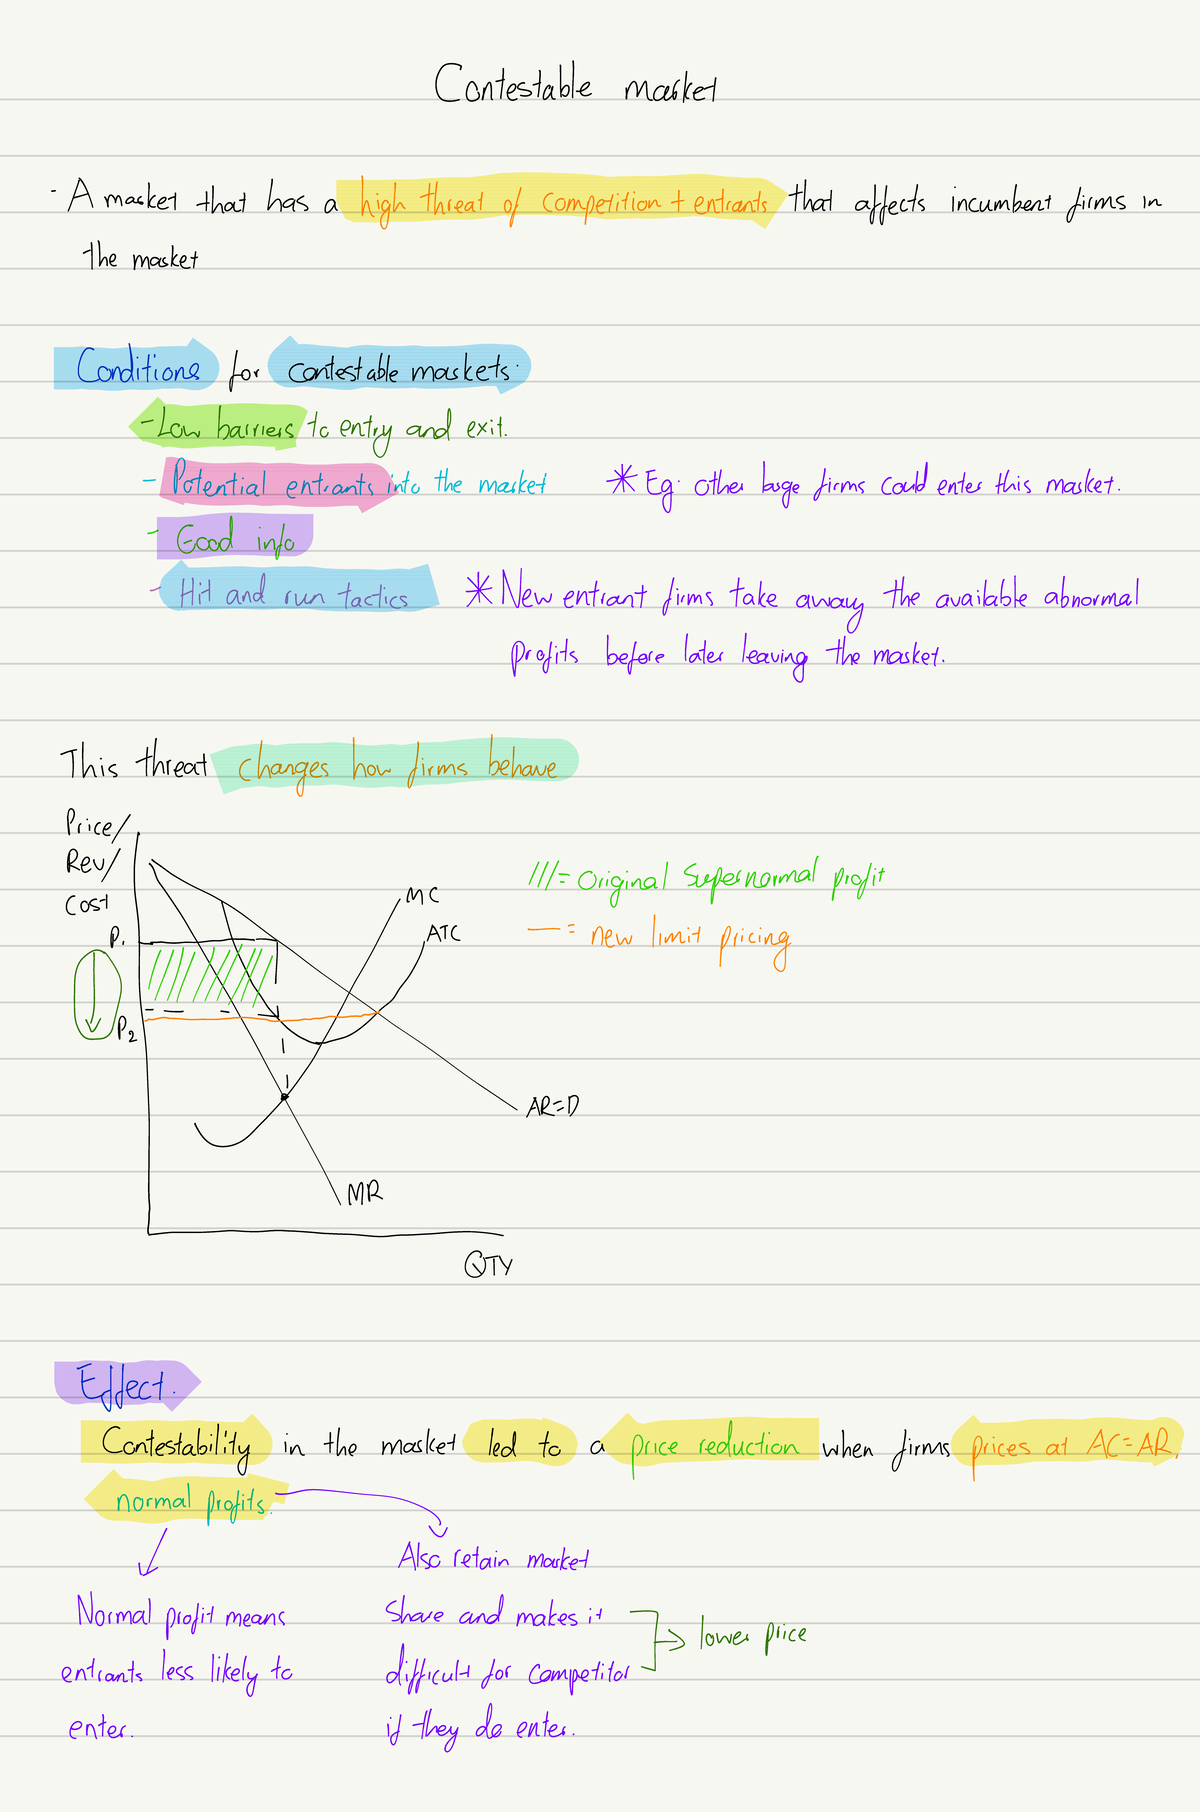 Contestable market
- A market that has a high threat of competition + entrants that affects incumbent firms in
the market
Conditions for contestable markets:
- Low barriers to entry and exit.
- Potential entrants into the market * Eg: other large firms could enter this market.
- Good info
- Hit and run tactics * New entrant firms take away the available abnormal
profits before later leaving the market.
This threat changes how firms behave
Price/
Rev/
Cost
P1
P2
MC
ATC
AR=D
MR
QTY
///= Original Supernormal profit
— = new limit pricing
Effect.
Contestability in the market led to a price reduction when firms prices at AC=AR.
normal profits.
Normal profit means
entrants less likely to
enter.
Also retain market
share and makes it
difficult for competitor
if they do enter.
lower price